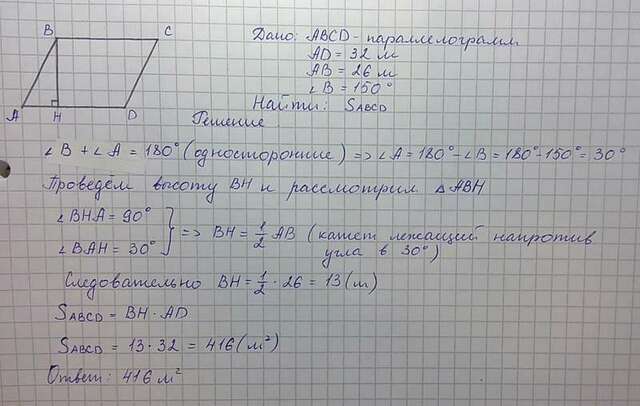 B C
A H D
Дано: ABCD - параллелограмм
AD = 32 м
AB = 26 м
∠B = 150°
Найти: SABCD
Решение
∠B + ∠A = 180° (односторонние) => ∠A = 180° - ∠B = 180° - 150° = 30°
Проведём высоту BH и рассмотрим △ABH
∠BHA = 90°
∠BAH = 30°
} => BH = 1/2 AB (катет лежащий напротив
угла в 30°)
Следовательно BH = 1/2 · 26 = 13 (м)
SABCD = BH · AD
SABCD = 13 · 32 = 416 (м²)
Ответ: 416 м²